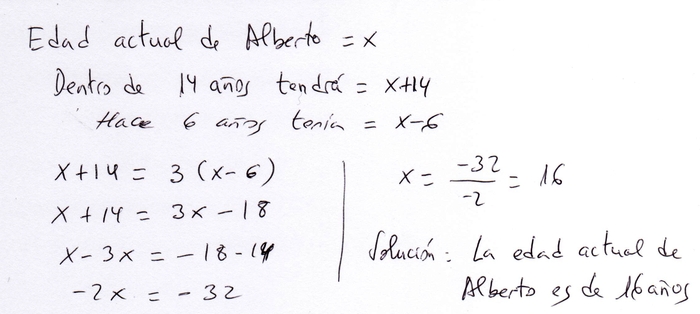 Edad actual de Alberto = x
Dentro de 14 años tendrá = x+14
Hace 6 años tenía = x-6
x+14 = 3(x-6)
x+14 = 3x-18
x-3x = -18-14
-2x = -32
x = -32/-2 = 16
Solución: La edad actual de
Alberto es de 16 años